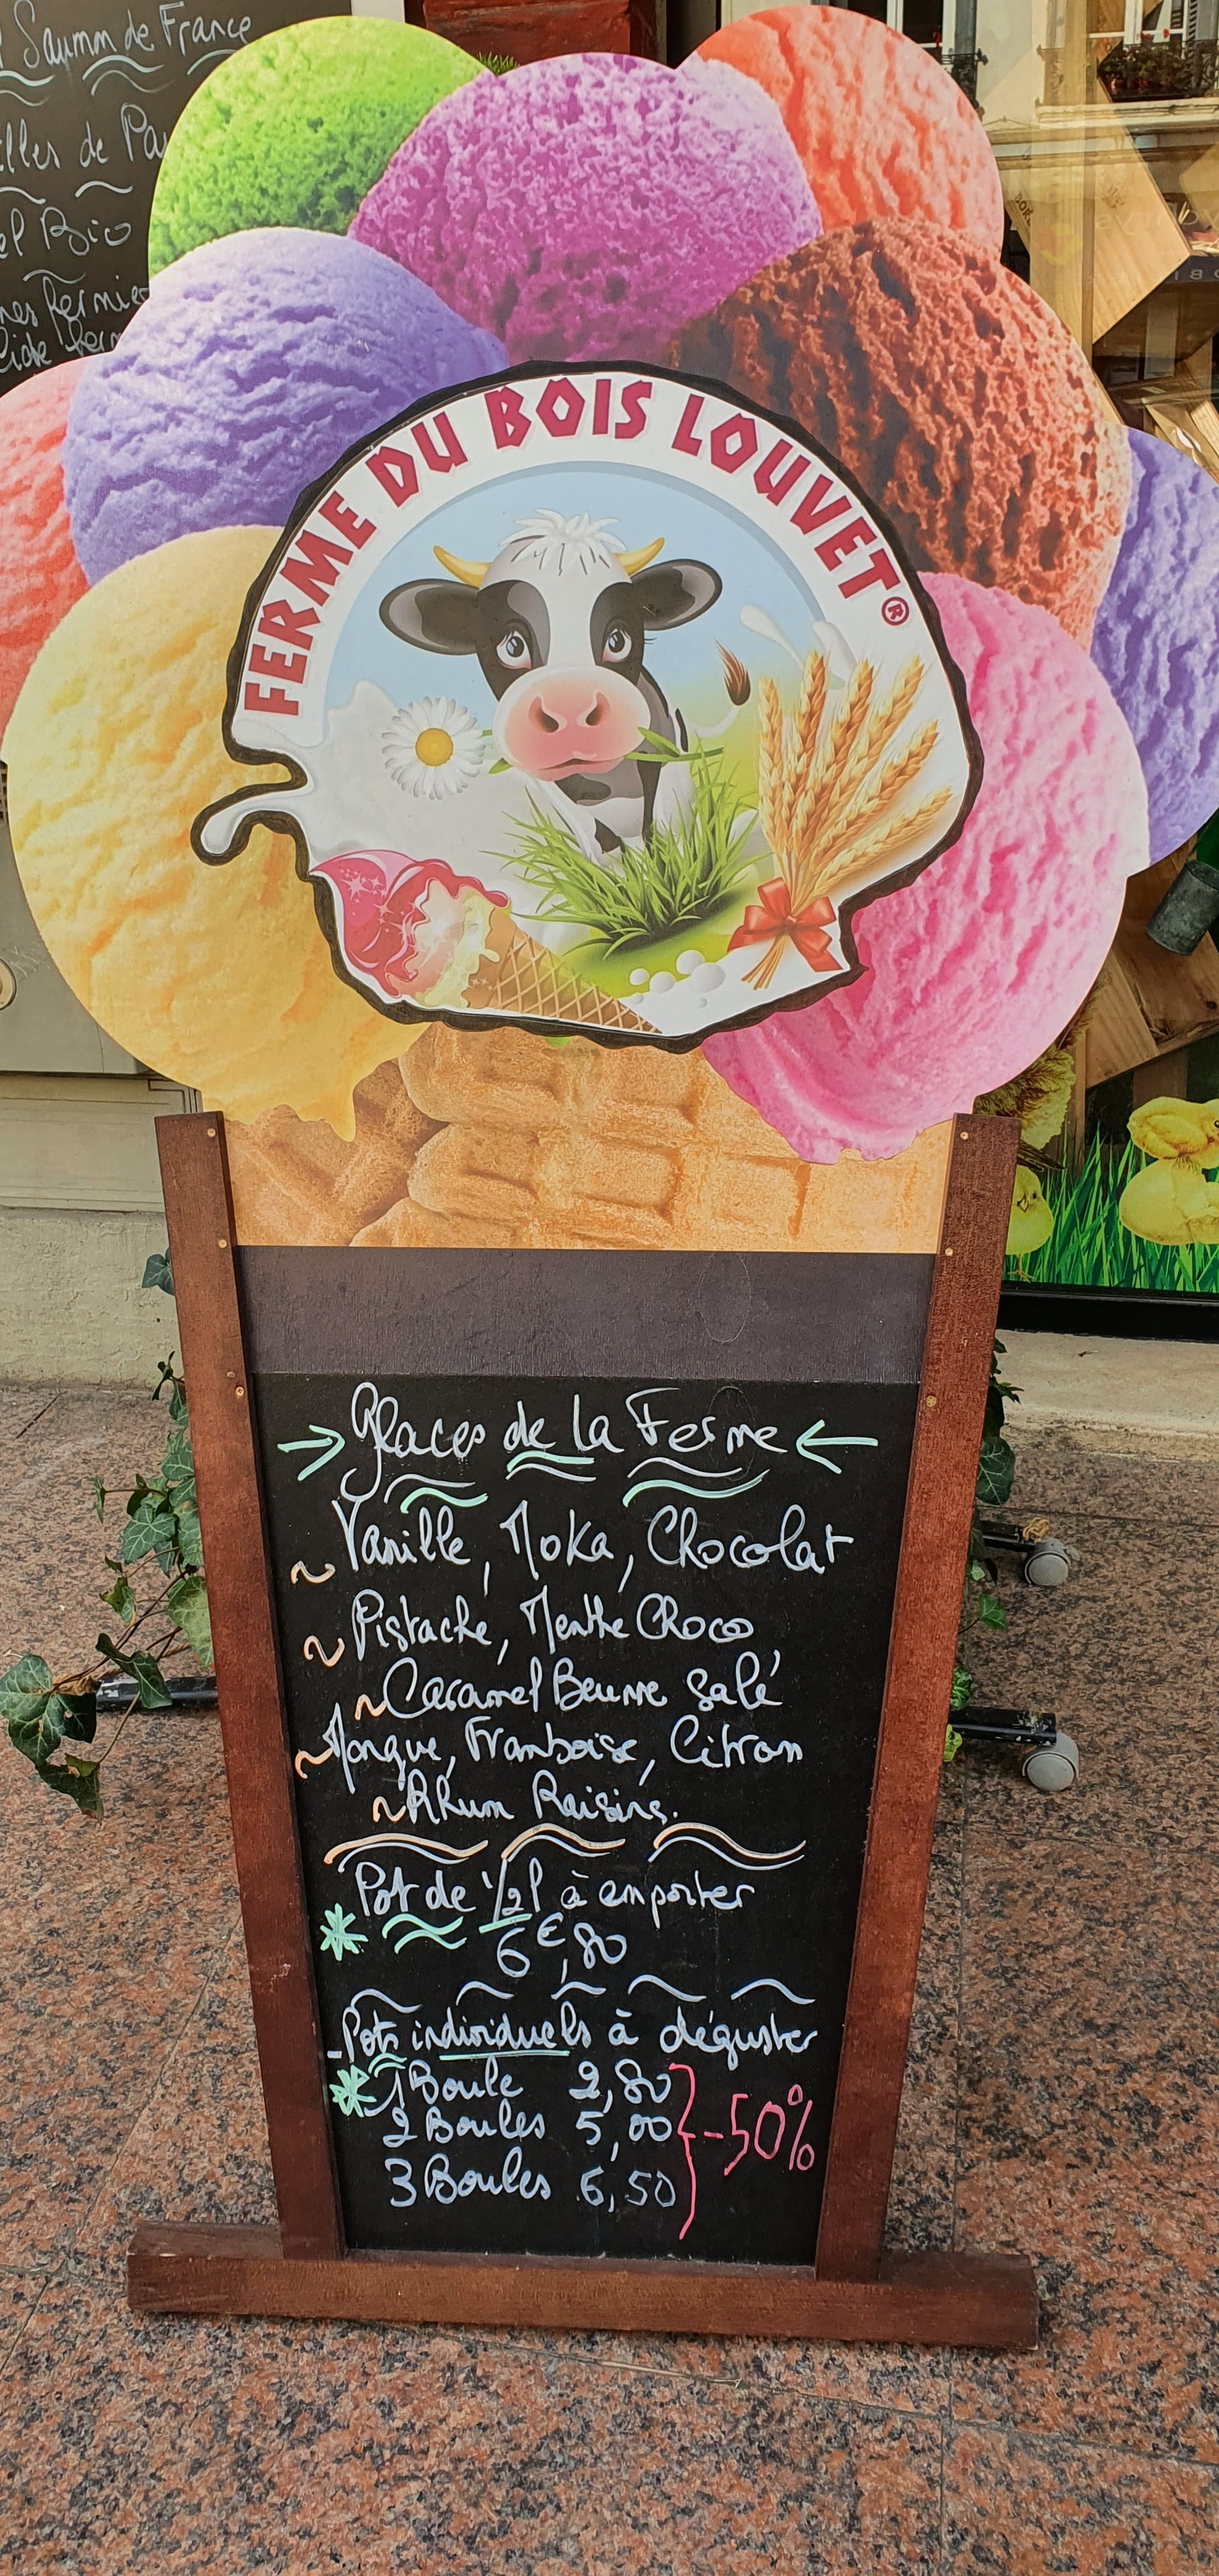 Saumon de France
lles de Pa
el Bio
nes fermier
Cidre ferm
FERME DU BOIS LOUVET®
Glaces de la Ferme
Vanille, Moka, Chocolat
Pistache, Menthe Choco
Caramel Beurre Salé
Mangue, Framboise, Citron
Rhum Raisins.
Pot de 1/2 l à emporter
6€,80
- Pots individuels à déguster
1 Boule 2,80
2 Boules 5,00 -50%
3 Boules 6,50